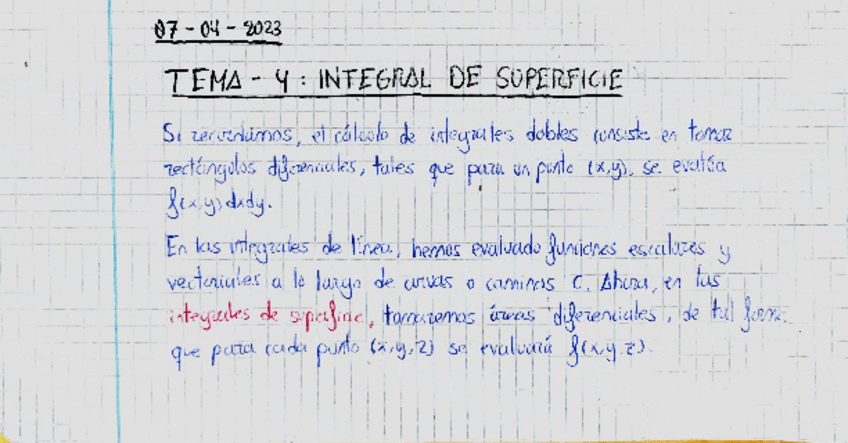 07-04-2023
TEMA-4: INTEGRAL DE SUPERFICIE
Si recordamos, el cálculo de integrales dobles consiste en tomar
rectángulos diferenciales, tales que para un punto (x,y), se evalúa
f(x,y)dxdy.
En las integrales de línea, hemos evaluado funciones escalares y
vectoriales a lo largo de curvas o caminos C. Ahora, en las
integrales de superficie, tomaremos áreas diferenciales, de tal forma
que para cada punto (x,y,z) se evaluará f(x,y,z).